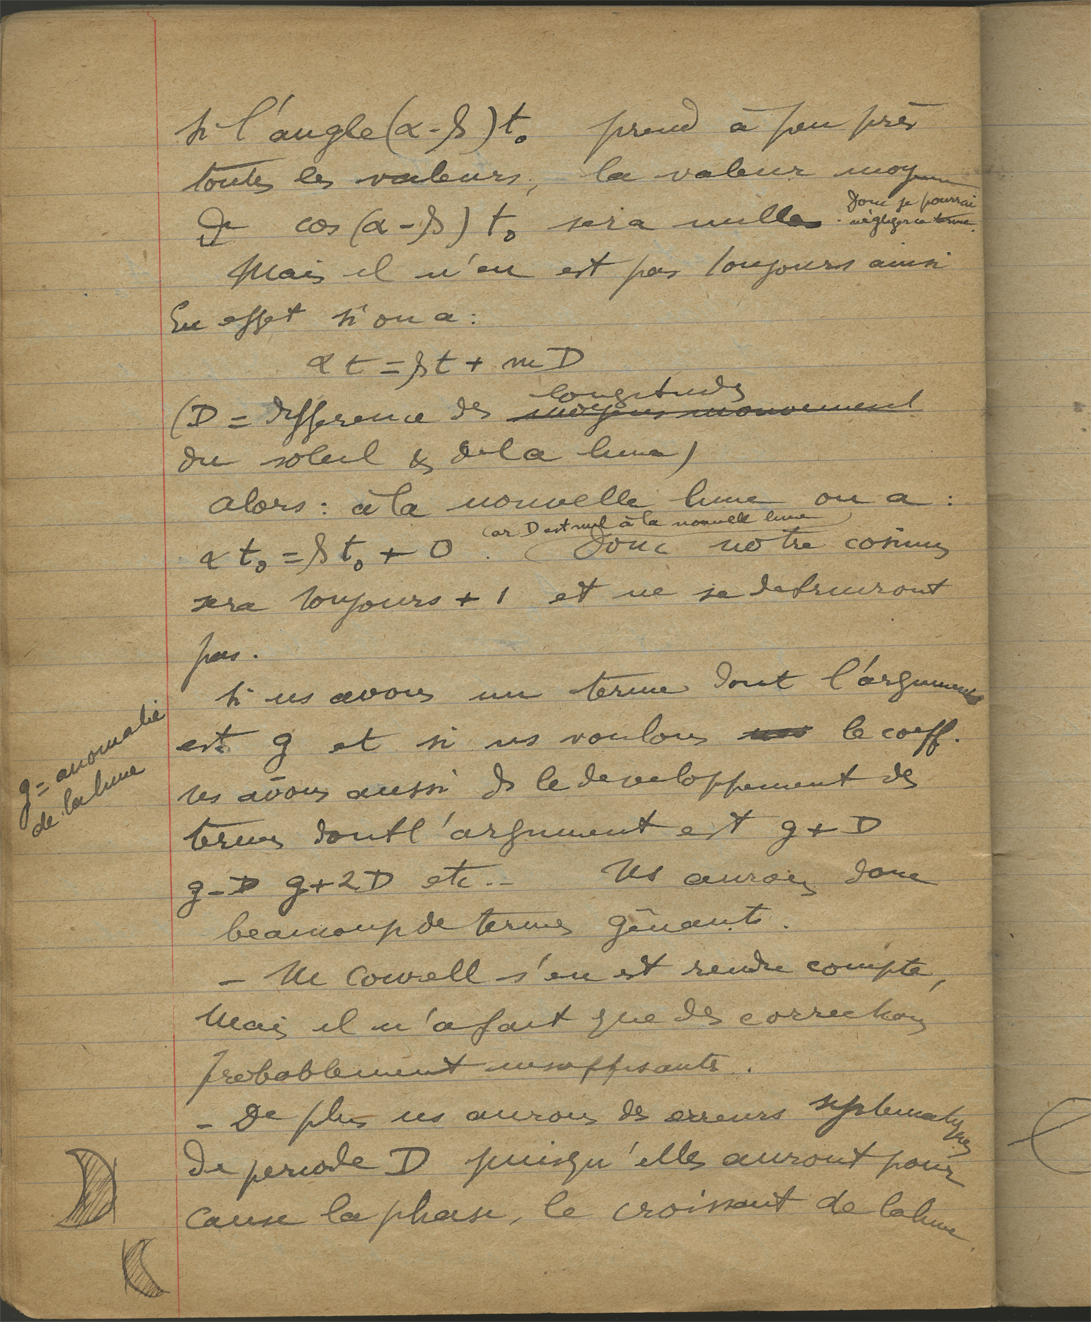 si l'angle (α-β) t₀ prend à peu près
toutes les valeurs, la valeur moyenne
de cos (α-β) t₀ sera nulle. Donc je pourrai
négliger ce terme.
Mais il n'en est pas toujours ainsi
En effet si on a :
αt = βt + mD
(D = difference des moyens mouvement longitudes
du soleil & de la lune)
alors : à la nouvelle lune on a :
car D est nul à la nouvelle lune
αt₀ = βt₀ + 0. (Donc notre cosinus
sera toujours + 1 et ne se detruiront
pas.
Si ns avons un terme dont l'argument
est g et si ns voulons le coeff.
g = anomalie
de la lune
ns avons aussi ds le developpement des
termes dont l'argument est g + D
g-D g+2D etc.. Ns aurons donc
beaucoup de termes gênants.
- M Cowell s'en est rendu compte,
Mais il n'a fait que des corrections
probablement insuffisants.
- De plus ns aurons des erreurs systematiques
de periode D puisqu'elles auront pour
cause la phase, le croissant de la lune.